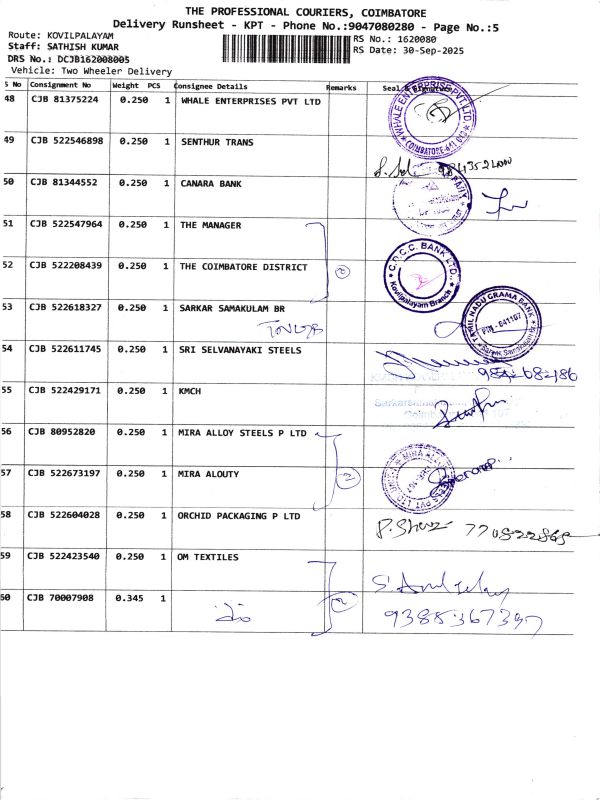 THE PROFESSIONAL COURIERS, COIMBATORE
Delivery Runsheet - KPT - Phone No.:9047080280 - Page No.:5
Route: KOVILPALAYAM
RS No.: 1620080
Staff: SATHISH KUMAR
RS Date: 30-Sep-2025
DRS No.: DCJB162008005
Vehicle: Two Wheeler Delivery
S No Consignment No Weight PCS Consignee Details Remarks Seal &
48 CJB 81375224 0.250 1 WHALE ENTERPRISES PVT LTD
WHALE ENTERPRISES PVT. LTD.
COIMBATORE-641
49 CJB 522546898 0.250 1 SENTHUR TRANS
50 CJB 81344552 0.250 1 CANARA BANK
51 CJB 522547964 0.250 1 THE MANAGER
52 CJB 522208439 0.250 1 THE COIMBATORE DISTRICT
2
C.D.C.C. BANK LTD.,
Kovilpalayam Branch
53 CJB 522618327 0.250 1 SARKAR SAMAKULAM BR
TNGB
TAMIL NADU GRAMA BANK
PIN - 641107
54 CJB 522611745 0.250 1 SRI SELVANAYAKI STEELS
55 CJB 522429171 0.250 1 KMCH
56 CJB 80952820 0.250 1 MIRA ALLOY STEELS P LTD
57 CJB 522673197 0.250 1 MIRA ALOUTY
2
58 CJB 522604028 0.250 1 ORCHID PACKAGING P LTD
59 CJB 522423540 0.250 1 OM TEXTILES
60 CJB 70007908 0.345 1
2
9385367397